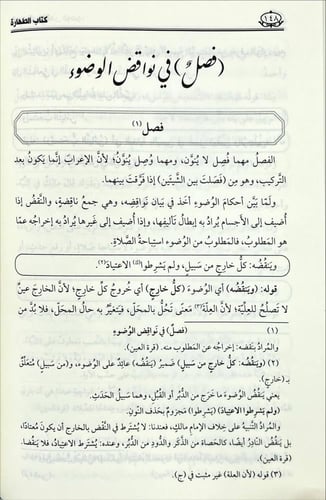 ١٤٨
كتاب الطهارة
(فصلٌ) في نواقض الوضوء
فصل (١)
الفصلُ مهما فُصِل لا يُنوَّن، ومهما وُصِل يُنوَّن؛ لأنَّ الإعرابَ إنَّما يكونُ بعد
التركيبِ، وهو مِن (فَصَلتُ بين الشيئَين) إذا فرَّقتَ بينهما.
ولَمَّا بيَّن أحكامَ الوُضوءِ أخذ في بيَان نَواقِضِه، وهي جمعُ ناقِضةٍ، والنَّقْضُ إذا
أُضيفَ إلى الأجسامِ يُرادُ به إبطالُ تأليفِها، وإذا أُضيف إلى غَيرِها يُرادُ به إخراجُه عمَّا
هو المطلوبُ، فالمطلوبُ من الوُضوءِ استِباحةُ الصَّلاةِ.
ويَنقُضُه: كلُّ خارجٍ من سَبيلٍ، ولم يَشرِطوا الاعتيادَ(٢).
قوله: (ويَنقُضُه) أي الوُضوءَ (كلُّ خارجٍ) أي خُروجُ كلِّ خارِجٍ؛ لأنَّ الخارجَ عينٌ
لا تصلُحُ للعِلِّيّةِ؛ لأنَّ العلّةَ(٣) مَعنًى تَحُلُّ بالمحَلِّ، فيتغيَّرُ به حالُ المحَلِّ، فلا بُدَّ مِن
(١) (فصلٌ) في نَواقِضِ الوُضوءِ
والمُرادُ بنَقضِه: إخراجُه عن المطلوبِ منه. (قرة العين).
(٢) (ويَنقُضُه: كلُّ خارجٍ من سَبيلٍ) ضَميرُ (يَنقُضُه) عائدٌ على الوُضوءِ، و(من سَبيلٍ) مُتعَلِّقٌ
بـ(خارج).
يعني يَنقُضُ الوُضوءَ ما خرَج من الدُّبُرِ أو القُبُلِ، وهما سَبيلُ الحدَثِ.
(ولم يَشرِطوا الاعتيادَ) (يَشرِطوا) مَجزومٌ بحَذفِ النُّونِ.
والمُرادُ التَّنبيهُ على خِلافِ الإمامِ مالكٍ، فعندنا: لا يُشترطُ في النَّقضِ بالخارجِ أن يكونَ مُعتادًا،
بل يَنقُضُ النّادِرُ أيضًا، كالحَصاةِ من الذَّكَرِ والدُّودِ من الدُّبُرِ، وعنده: يُشترطُ الاعتيادُ، فلا يَنقُضا.
(قرة العين).
(٣) قوله (لأن العلة) غير مثبت في (ج).